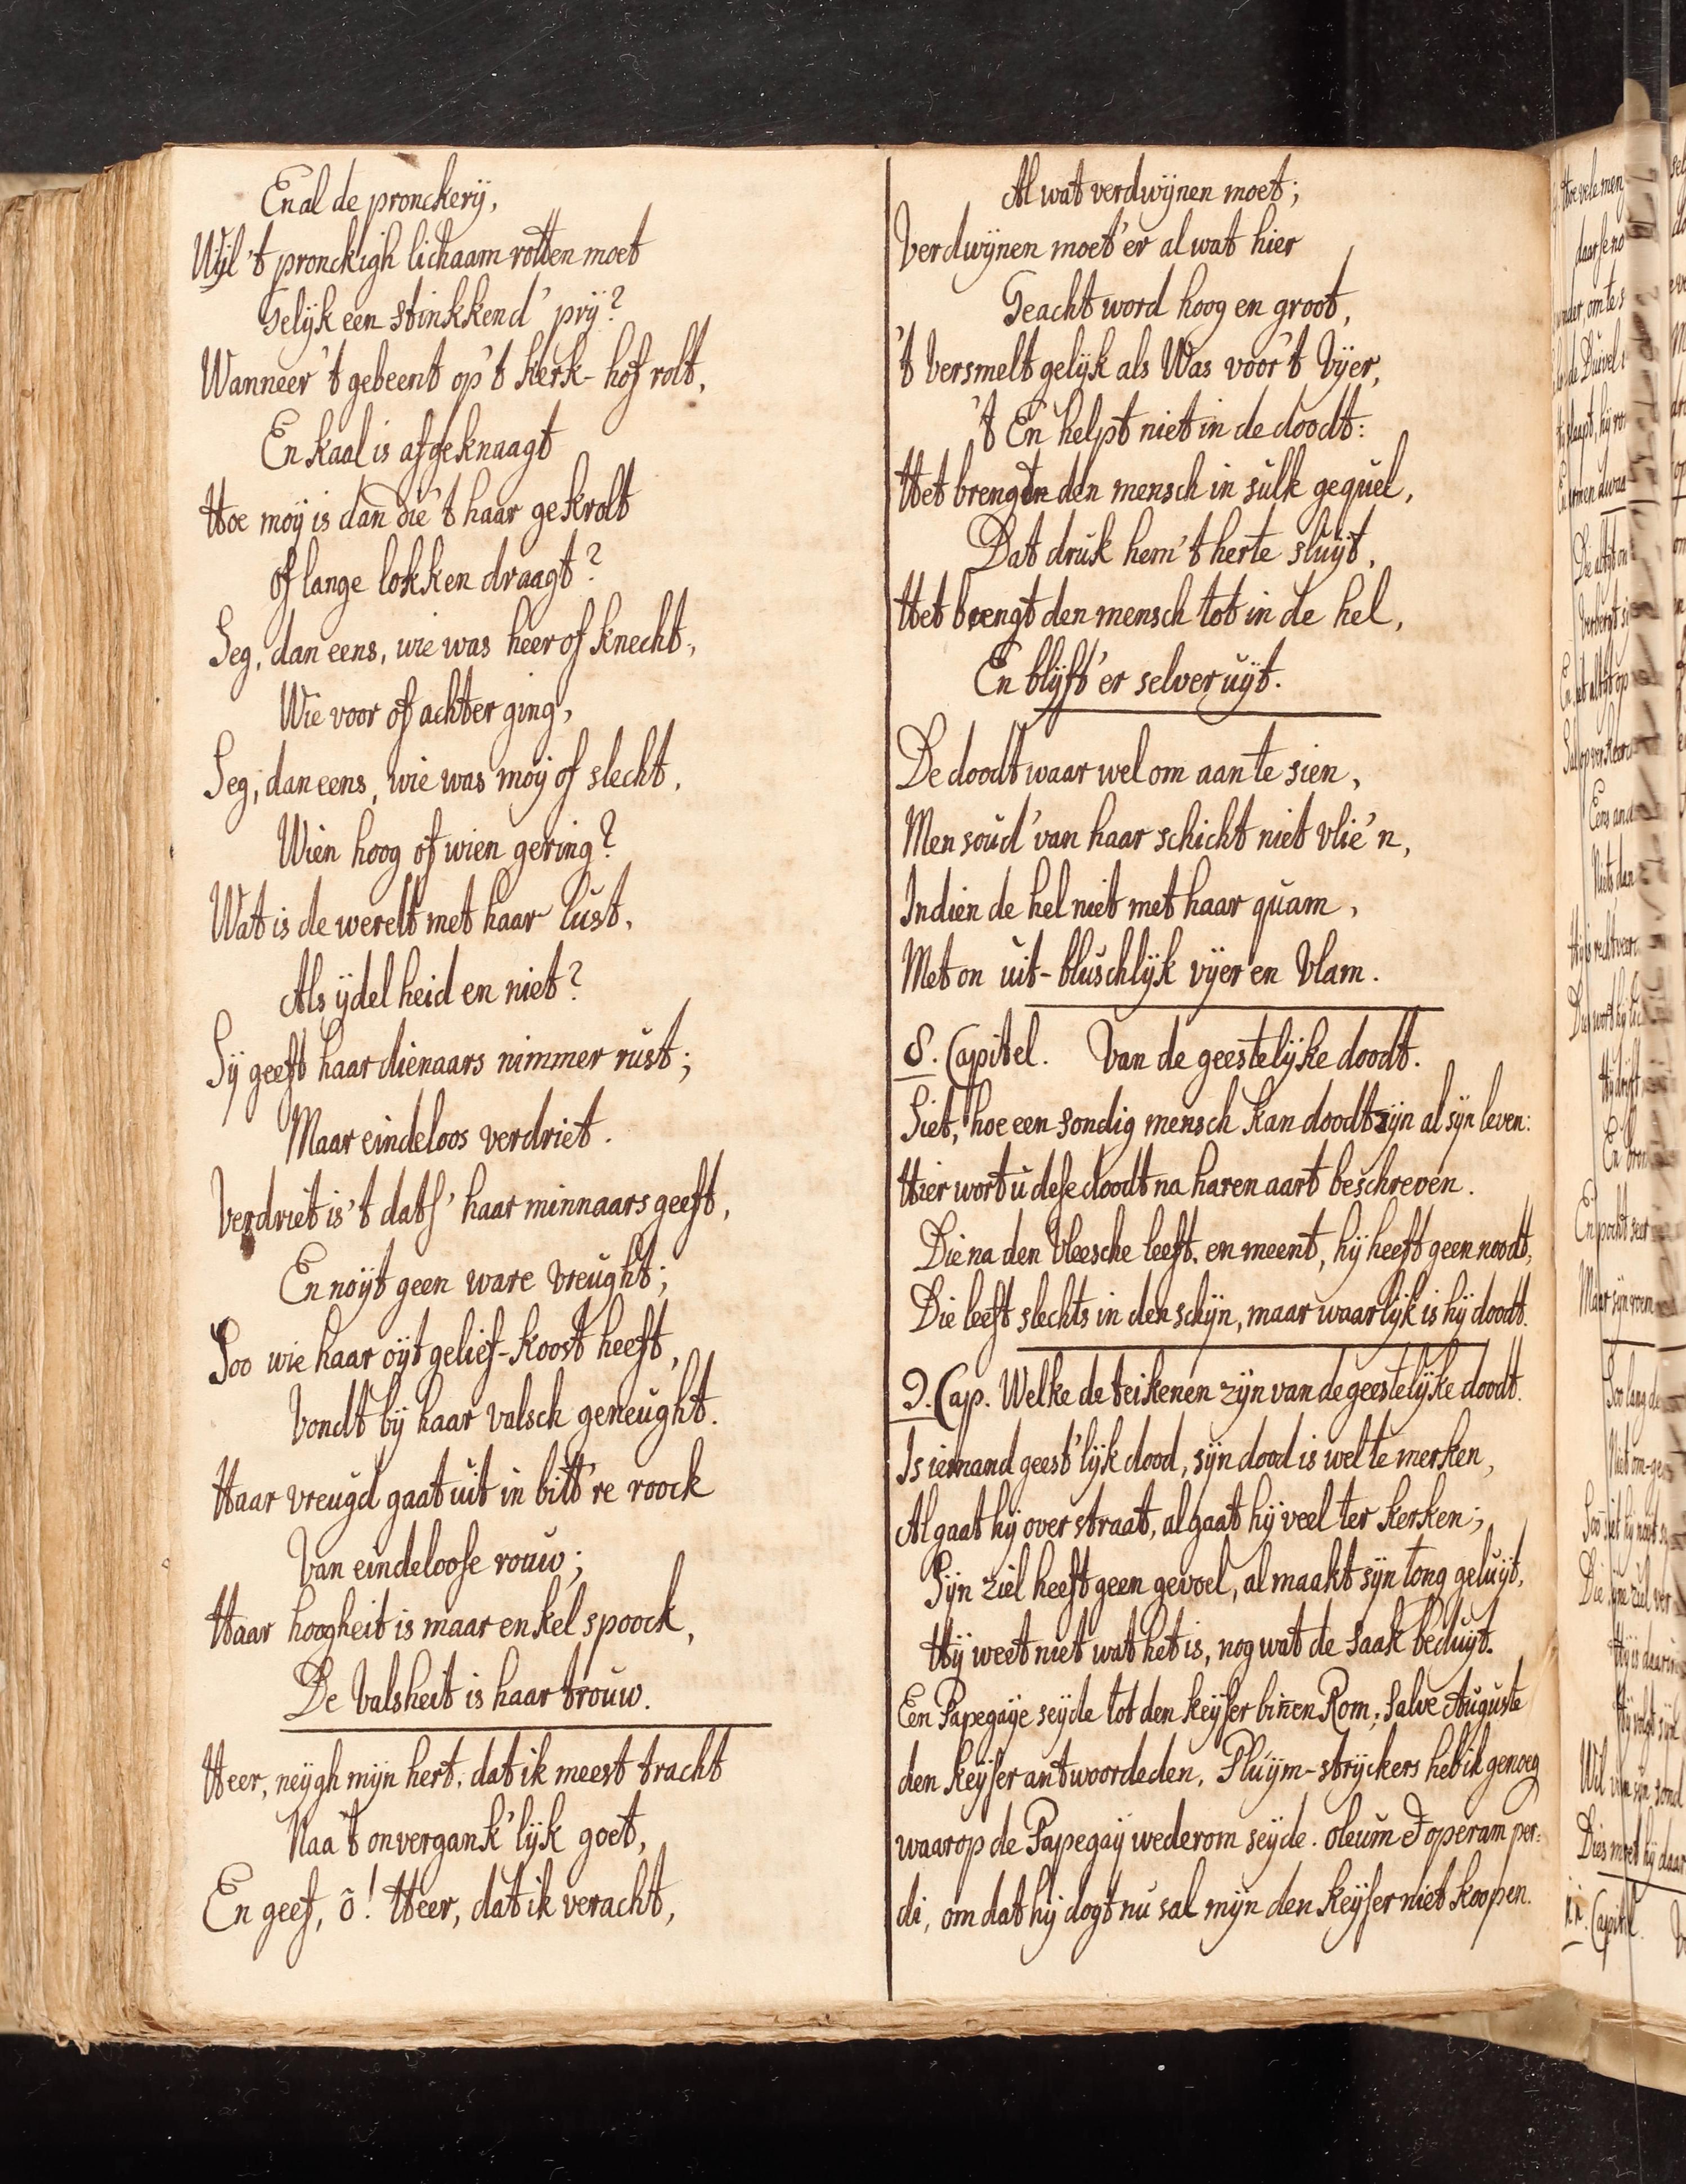 En al de pronckerÿ,
Wÿl 't pronckigh lichaam rotten moet
Gelÿk een stinkkend' prÿ?
Wanneer 't gebeent op 't kerk-hof rolt,
En kaal is afgeknaagt
Hoe moÿ is dan die 't haar gekrolt
of lange lokken draagt?
Seg, dan eens, wie was heer of knecht,
Wie voor of achter ging,
Seg, dan eens, wie was moÿ of slecht,
Wien hoog of wien gering?
Wat is de werelt met haar lust,
Als ÿdelheid en niet?
Sÿ geeft haar dienaars nimmer rust;
Maar eindeloos verdriet.
Verdriet is 't dat s' haar minnaars geeft,
En noÿt geen ware vreught;
Soo wie haar oÿt gelief-koost heeft,
Vondt bÿ haar valsch geneught.
Haar vreugd gaat uit in bitt're roock
Van eindeloose rouw;
Haar hoogheit is maar enkel spoock,
De Valsheit is haar trouw.
Heer, neÿgh mÿn hert, dat ik meest tracht
Naa 't onvergank'lÿk goet,
En geef, õ! Heer, dat ik veracht,
Al wat verdwÿnen moet;
Verdwÿnen moet'er al wat hier
Geacht word hoog en groot,
't Versmelt gelÿk als Was voor 't Vÿer,
't En helpt niet in de doodt:
Het brengt den mensch in sulk gequel,
Dat druk hem 't herte sluÿt,
Het brengt den mensch tot in de hel,
En blÿft'er selver uÿt.
De doodt waar wel om aan te sien,
Men soud' van haar schicht niet vlie'n,
Indien de hel niet met haar quam,
Met on uit-bluschlÿk vÿer en Vlam.
8. Capitel. Van de geestelÿke doodt.
Siet, hoe een sondig mensch kan doodt zÿn al sÿn leven:
Hier wort u dese doodt na haren aart beschreven.
Die na den Vleesche leeft, en meent, hÿ heeft geen noodt,
Die leeft slechts in den schÿn, maar waarlÿk is hÿ doodt.
9. Cap. Welke de teikenen zÿn van de geestelÿke doodt.
Is iemand geest'lÿk dood, sÿn dood is wel te merken,
Al gaat hÿ over straat, al gaat hÿ veel ter kerken;
Sÿn ziel heeft geen gevoel, al maakt sÿn tong geluÿt,
Hÿ weet niet wat het is, nog wat de saak beduÿt.
Een Papegaÿe seÿde tot den keÿser binen Rom; Salve Auguste
den keÿser antwoordeden, Pluÿm-strÿckers heb ik genoeg
waarop de Papegaÿ wederom seÿde. oleum & operam per:
di, om dat hÿ dogt nu sal mÿn den keÿser niet koopen.